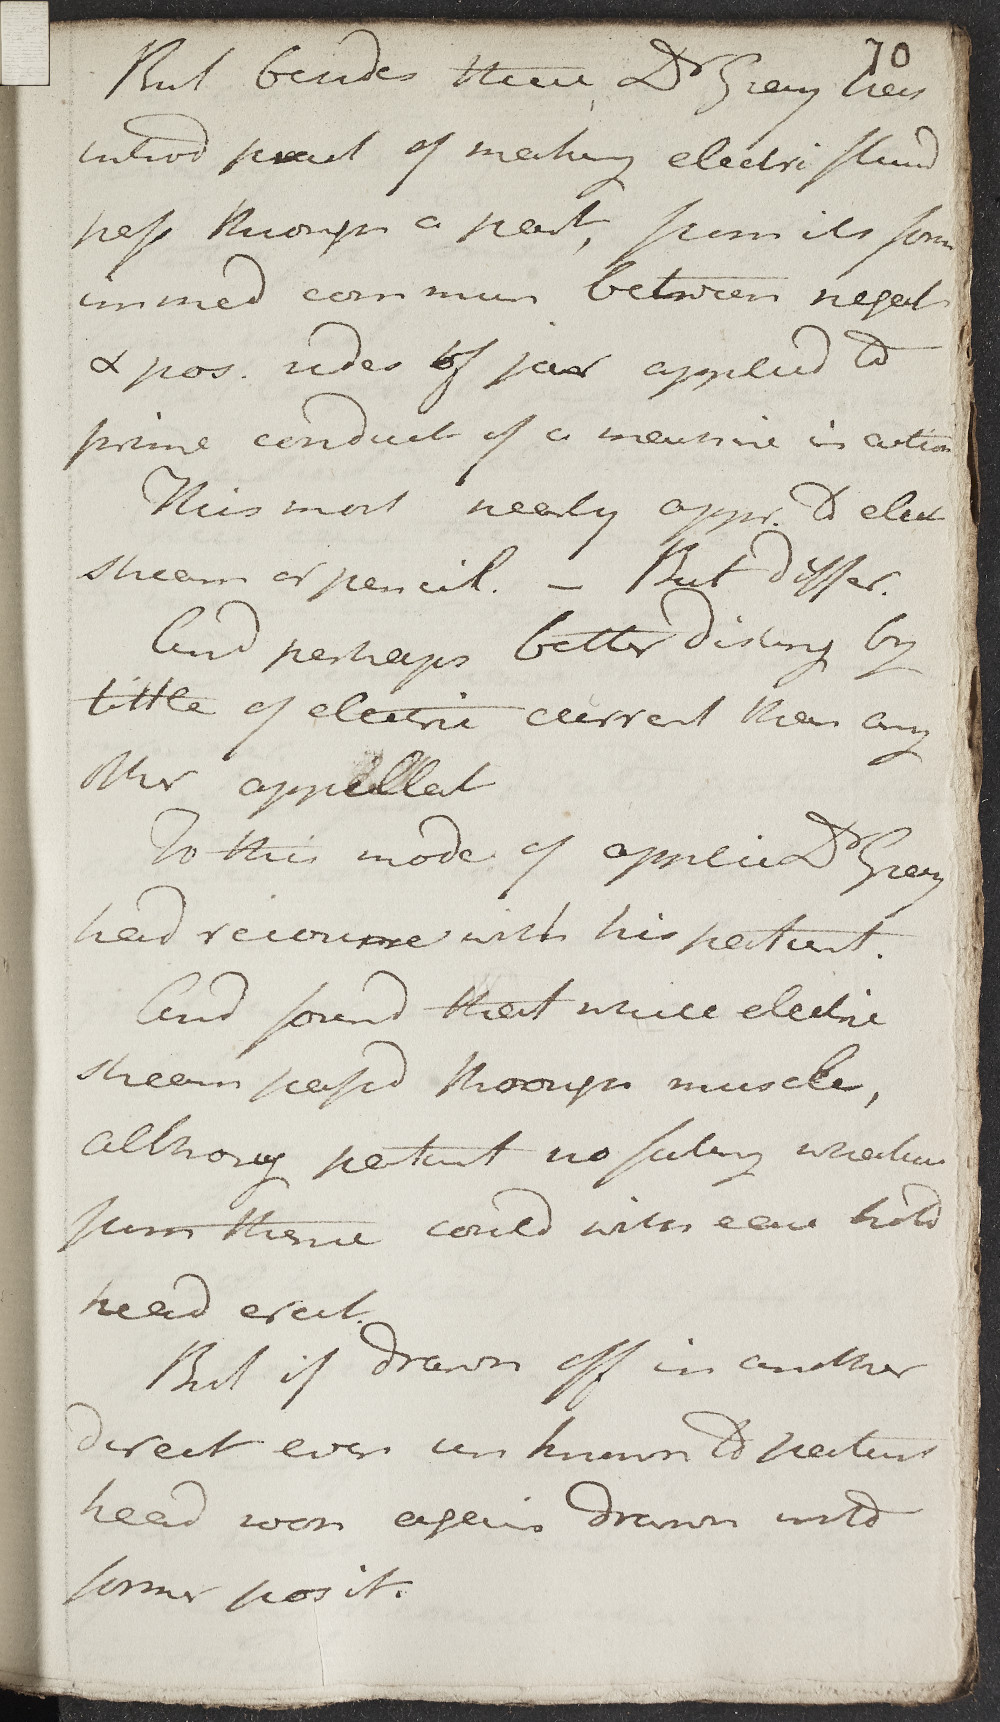 70
But besides these, Dr Grey has
introd pract of making electri fluid
pass through a part, from its form
immed commun between negat
& pos. sides of jar applied to
prime conduct of a machine in action
This most nearly appr. to elect
stream or pencil. — But differ.
And perhaps better disting by
tittle of electric current than any
other appellat
To this mode of applic Dr Grey
had recourse with his patient.
And found that while electric
stream passd through muscle,
althoug patient no feeling whatever
from thence could with ease hold
head erect.
But if drawn off in another
direct even unknown to patient
head soon again drawn into
former posit.